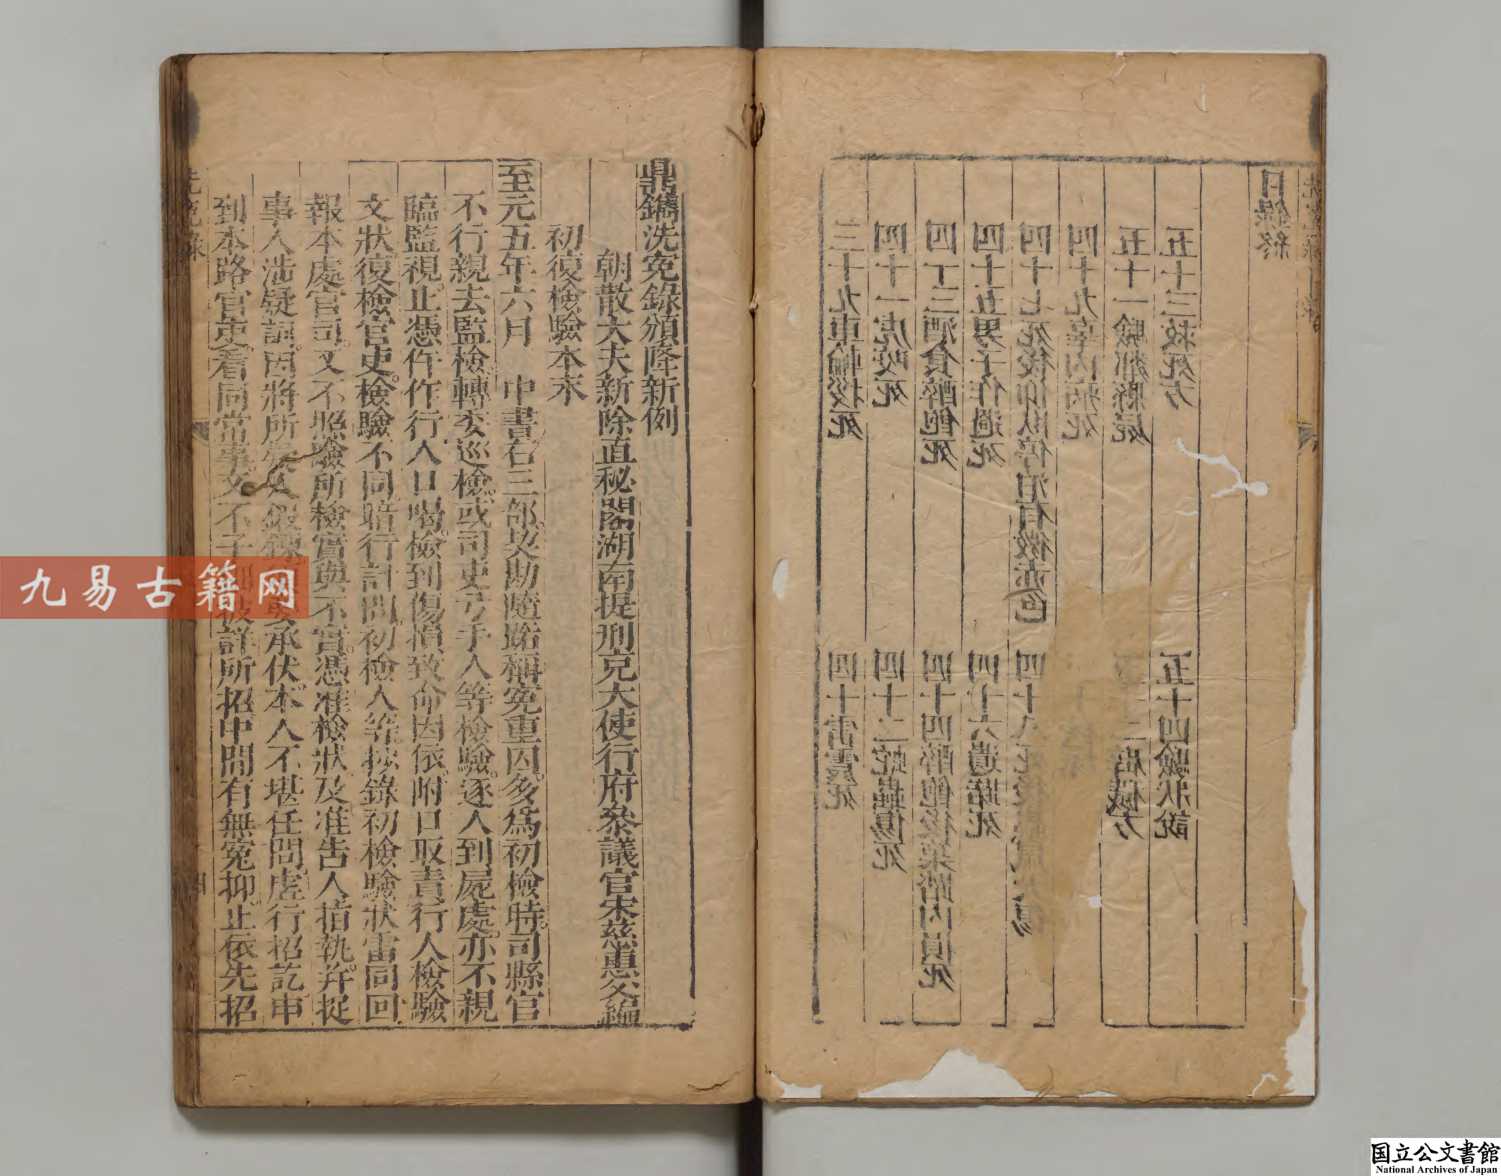 三十九車輪拶死　四十雷震死
四十一虎咬死　四十二蛇蟲傷死
四十三酒食醉飽死　四十四醉飽後築踏內損死
四十五男子作過死　四十六遺路死
四十七死後仰臥停泊有微赤色　四十八死後
四十九
五十一驗鄰縣屍
五十三救死方　五十四驗狀說
目錄終
鼎鐫洗冤錄頒降新例
朝散大夫新除直秘閣湖南提刑充大使行府參議官宋慈惠父編
初復檢驗本末
至元五年六月　中書右三部契勘隨路稱冤重囚多爲初檢時司縣官
不行親去監檢轉委巡檢或司吏弓手人等檢驗逐人到屍處亦不親
臨監視止憑仵作行人口喝檢到傷損致命因依附口取責行人檢驗
文狀復檢官吏檢驗不同暗行計問初檢人等抄錄初檢驗狀雷同回
報本處官司又不照驗所檢實與不實憑准檢狀及准告人指執幷捉
事人涉疑詞因將所 人 鍊 要承伏本人不堪任問虛行招訖申
到本路官吏看同常事又不子細披詳所招中間有無冤抑止依先招
洗冤錄
九易古籍网
国立公文書館
National Archives of Japan